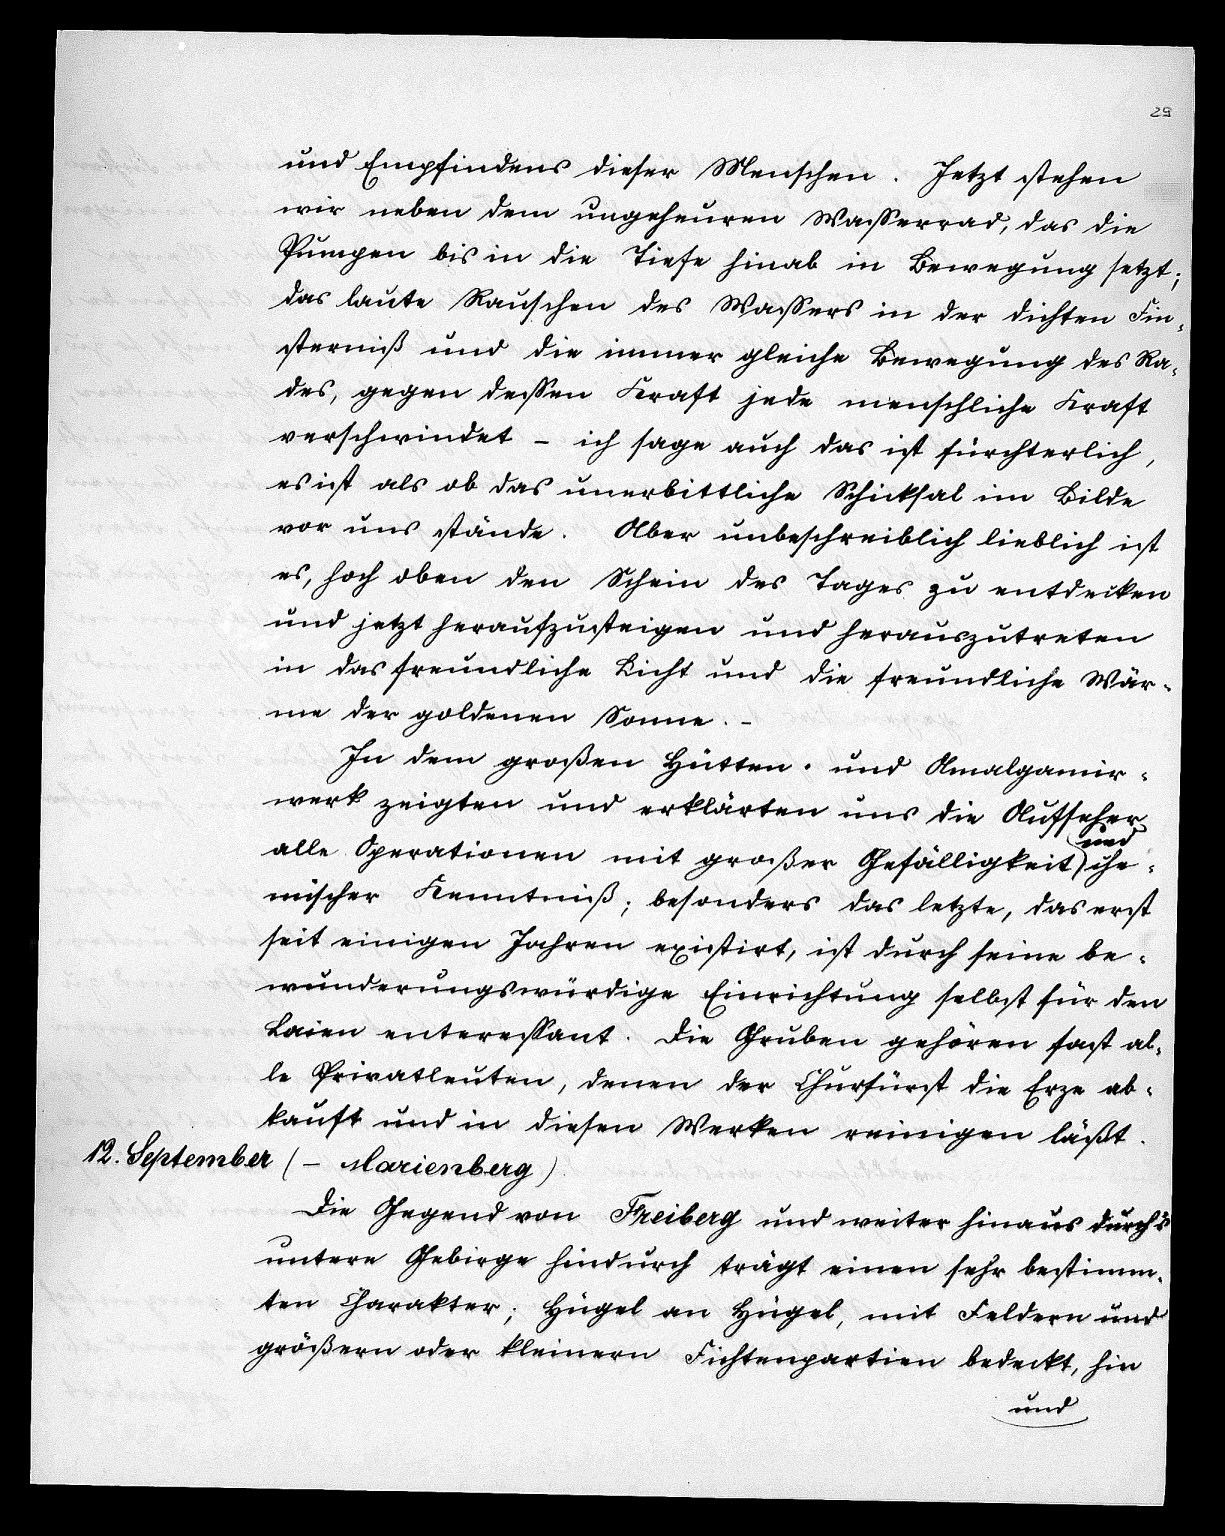 29
und Empfindens dieser Menschen. Jetzt stehen
wir neben dem ungeheuren Wasserrad, das die
Pumpen bis in die Tiefe hinab in Bewegung setzt;
das laute Rauschen des Wassers in der dichten Fin-
sterniß und die immer gleiche Bewegung des Ra-
des, gegen dessen Kraft jede menschliche Kraft
verschwindet – ich sage auch das ist fürchterlich,
es ist als ob das unerbittliche Schicksal im Bilde
vor uns stände. Aber unbeschreiblich lieblich ist
es, hoch oben den Schein des Tages zu entdecken
und jetzt heraufzusteigen und herauszutreten
in das freundliche Licht und die freundliche Wär-
me der goldenen Sonne. –
In dem großen Hütten- und Amalgamir-
werk zeigten und erklärten uns die Aufseher
alle Operationen mit großer Gefälligkeit und che-
mischer Kenntniß; besonders das letzte, das erst
seit einigen Jahren existirt, ist durch seine be-
wunderungswürdige Einrichtung selbst für den
Laien enteressant. Die Gruben gehören fast al-
le Privatleuten, denen der Churfürst die Erze ab-
kauft und in diesen Werken reinigen läßt.
12. September (– Marienberg).
Die Gegend von Freiberg und weiter hinaus durch's
untere Gebirge hindurch trägt einen sehr bestimm-
ten Charakter; Hügel an Hügel, mit Feldern und
größern oder kleinern Fichtenpartien bedeckt, hin
und